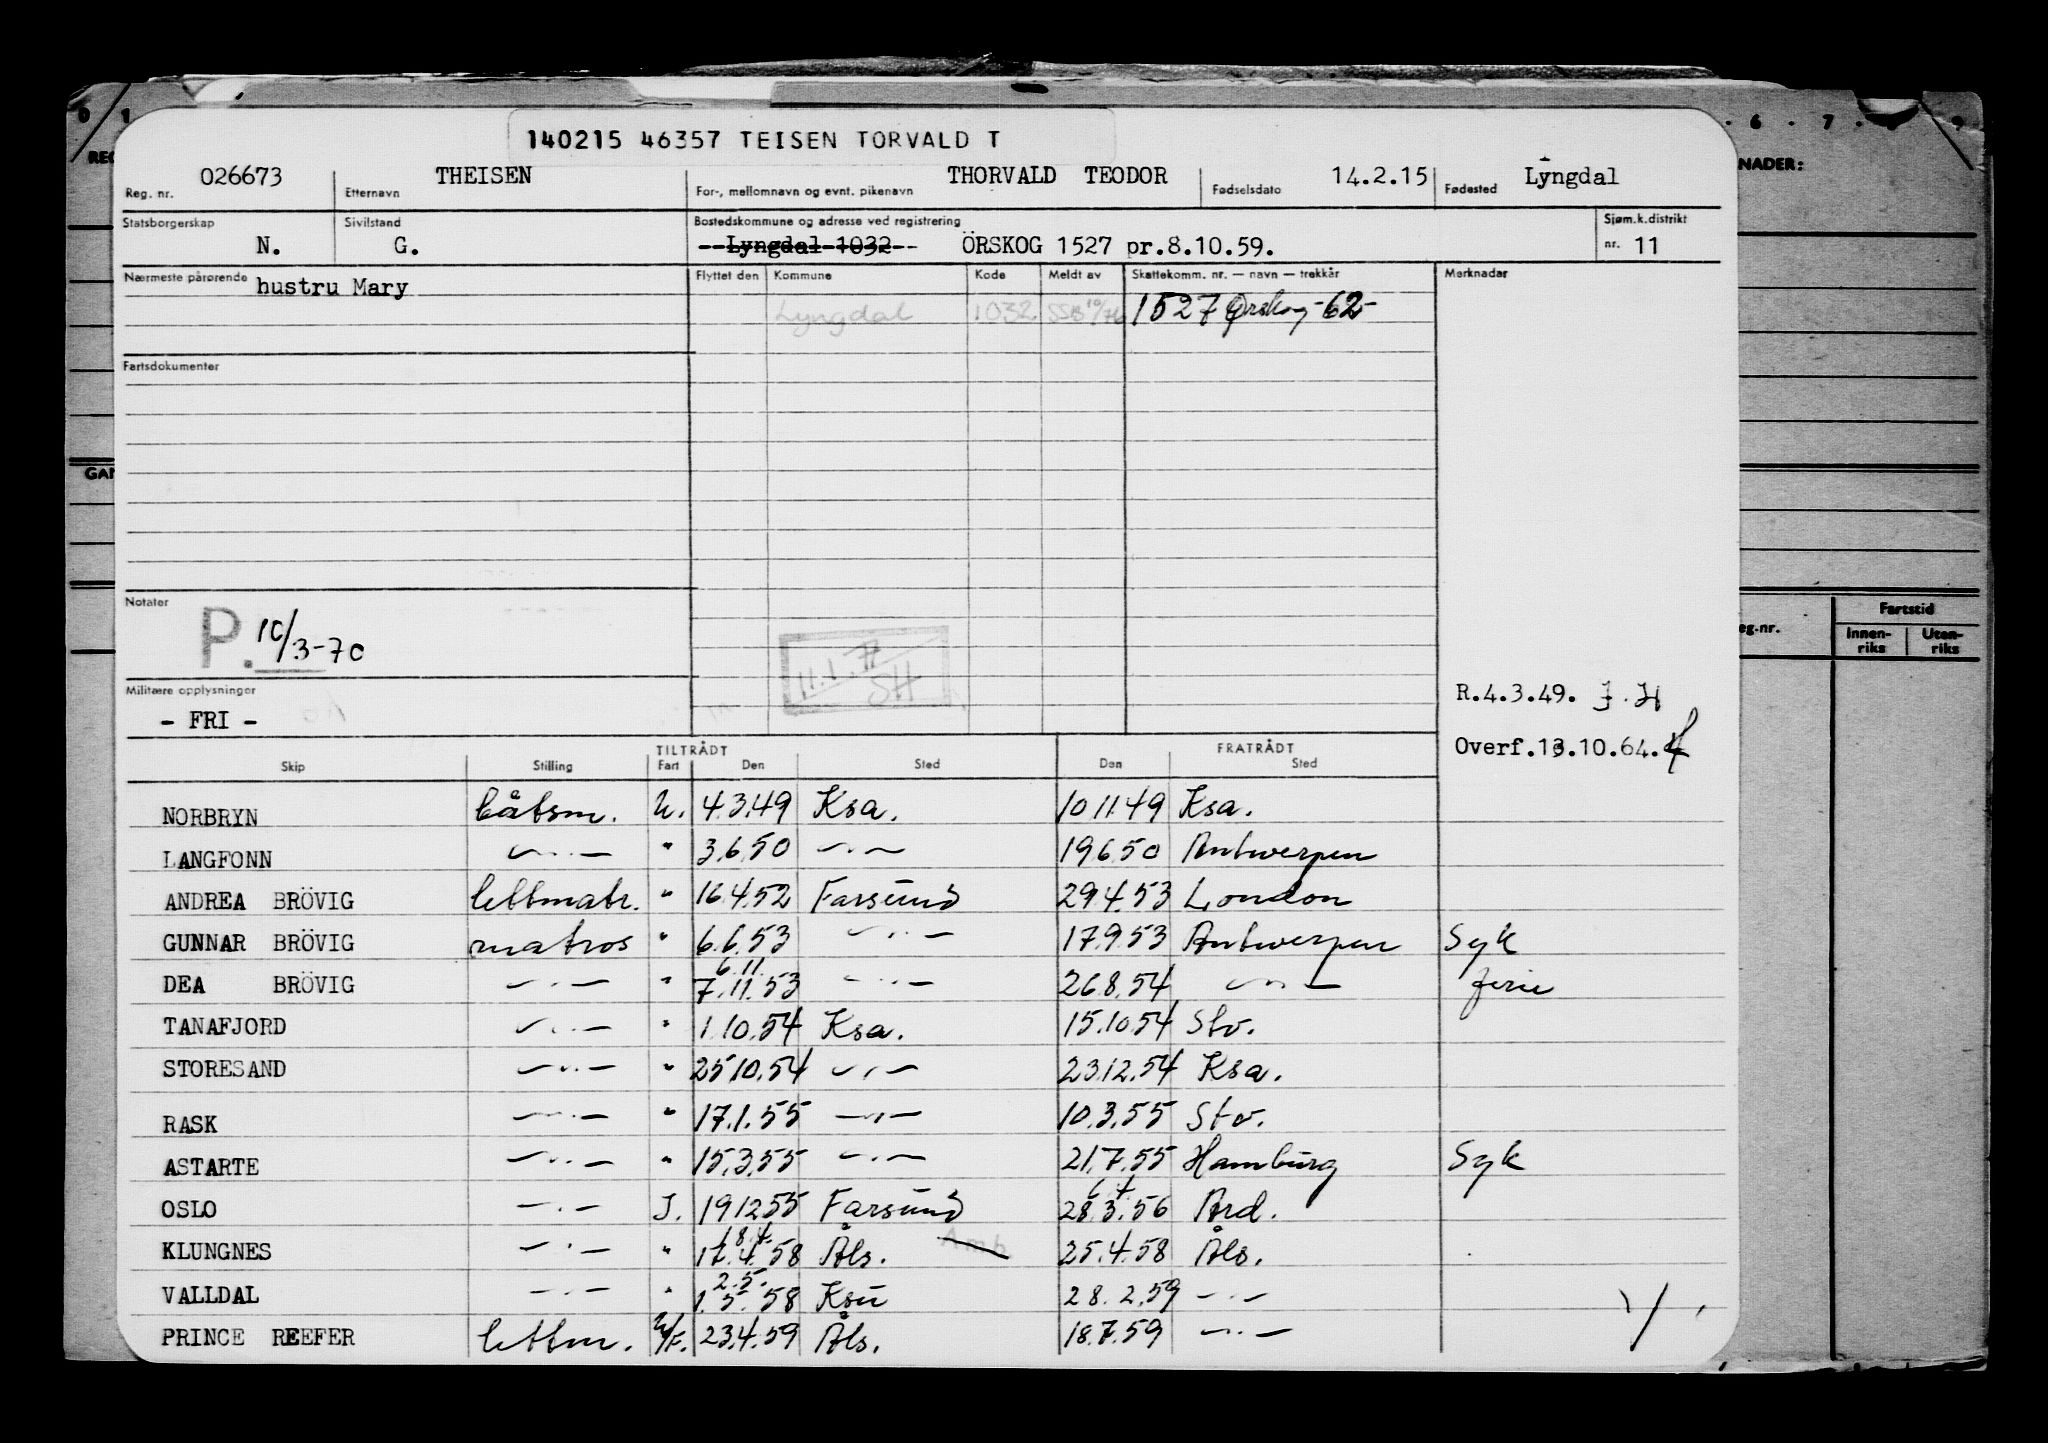 140215 46357 TEISEN TORVALD T
026673 THEISEN THORVALD TEODOR 14.2.15 Lyngdal
Reg. nr. Etternavn For-, mellomnavn og evnt. pikenavn Fødselsdato Fødested
Statsborgerskap Sivilstand Bostedskommune og adresse ved registrering Sjøm.k.distrikt
N. G. Lyngdal 1032 ÖRSKOG 1527 pr.8.10.59. nr. 11
Nærmeste pårørende hustru Mary Flyttet den Kommune Kode Meldt av Skattekomm. nr. — navn — trekkår Merknader
Lyngdal 1032 SSB 10/76 1527 Ørskog -62-
Fartsdokumenter
Notater
P. 10/3-70
11.1.77
SH
Militære opplysninger
- FRI -
R.4.3.49. J.H
Overf.13.10.64.
TILTRÅDT FRATRÅDT
Skip Stilling Fart Den Sted Den Sted
NORBRYN båtsm. U. 4.3.49 Ksa. 10.11.49 Ksa.
LANGFONN —..— " 3.6.50 —..— 19.6.50 Antwerpen
ANDREA BRÖVIG lettmatr. " 16.4.52 Farsund 29.4.53 London
GUNNAR BRÖVIG matros " 6.6.53 —..— 17.9.53 Antwerpen Syk
6.11.
DEA BRÖVIG —..— " 7.11.53 —..— 26.8.54 —..— ferie
TANAFJORD —..— " 1.10.54 Ksa. 15.10.54 Stv.
STORESAND —..— " 25.10.54 —..— 23.12.54 Ksa.
RASK —..— " 17.1.55 —..— 10.3.55 Stv.
ASTARTE —..— " 15.3.55 —..— 21.7.55 Hamburg Syk
6.4.
OSLO —..— J. 19.12.55 Farsund 28.3.56 Ard.
18.4.
KLUNGNES —..— " 17.4.58 Åls. Amb. 25.4.58 Åls.
2.5.
VALLDAL —..— " 1.5.58 Ksu 28.2.59 —..—
PRINCE REEFER lettm. U/F. 23.4.59 Åls. 18.7.59 —..—
0 1 6 7 9
REG
NADER:
GAN
eg.-nr.
Fartstid
Innen-riks Uten-riks